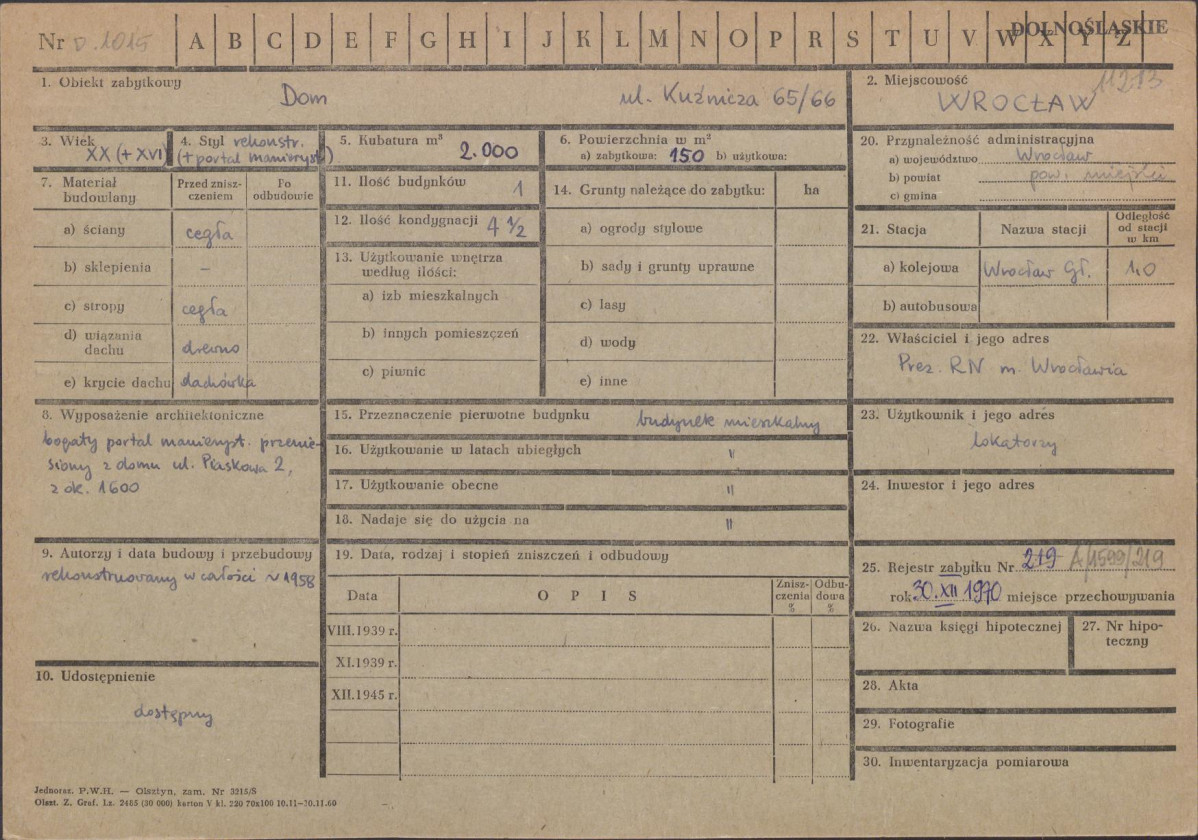 Nr D.1015 A B C D E F G H I J K L M N O P R S T U V W X Y Z DOLNOŚLĄSKIE
1. Obiekt zabytkowy
Dom ul. Kuźnicza 65/66
2. Miejscowość 11213
WROCŁAW
3. Wiek
XX (+ XVI)
4. Styl rekonstr.
(+ portal manieryst.)
5. Kubatura m³
2.000
6. Powierzchnia w m²
a) zabytkowa: 150 b) użytkowa:
20. Przynależność administracyjna
a) województwo Wrocław
b) powiat pow. miejski
c) gmina
7. Materiał budowlany
Przed zniszczeniem
Po odbudowie
a) ściany cegła
b) sklepienia –
c) stropy cegła
d) wiązania dachu drewno
e) krycie dachu dachówka
11. Ilość budynków 1
12. Ilość kondygnacji 4 ½
13. Użytkowanie wnętrza
według ilości:
a) izb mieszkalnych
b) innych pomieszczeń
c) piwnic
14. Grunty należące do zabytku: ha
a) ogrody stylowe
b) sady i grunty uprawne
c) lasy
d) wody
e) inne
21. Stacja Nazwa stacji Odległość od stacji w km
a) kolejowa Wrocław Gł. 1,0
b) autobusowa
22. Właściciel i jego adres
Prez. RN m. Wrocławia
8. Wyposażenie architektoniczne
bogaty portal manieryst. przenie-
siony z domu ul. Piaskowa 2,
z ok. 1600
15. Przeznaczenie pierwotne budynku budynek mieszkalny
16. Użytkowanie w latach ubiegłych "
17. Użytkowanie obecne "
18. Nadaje się do użycia na "
23. Użytkownik i jego adres
lokatorzy
24. Inwestor i jego adres
9. Autorzy i data budowy i przebudowy
rekonstruowany w całości w 1958
19. Data, rodzaj i stopień zniszczeń i odbudowy
Data OPIS Zniszczenia % Odbudowa %
VIII.1939 r.
XI.1939 r.
XII.1945 r.
25. Rejestr zabytku Nr 219 A/1599/219
rok 30.XII 1970 miejsce przechowywania
26. Nazwa księgi hipotecznej
27. Nr hipo-
teczny
10. Udostępnienie
dostępny
28. Akta
29. Fotografie
30. Inwentaryzacja pomiarowa
Jednoraz. P.W.H. — Olsztyn, zam. Nr 3215/S
Olszt. Z. Graf. Lz. 2485 (30 000) karton V kl. 220 70x100 10.11—30.11.60